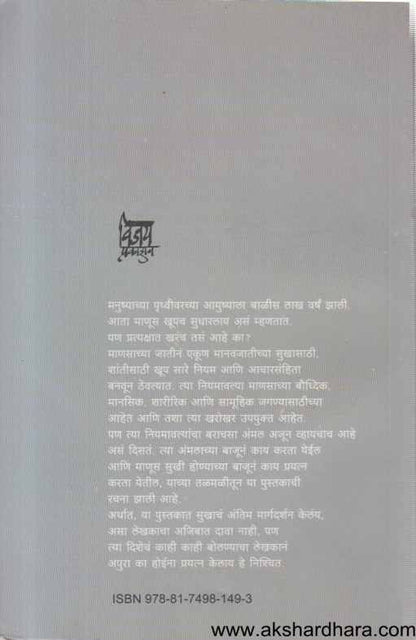 विजय
प्रकाशन
मनुष्याच्या पृथ्वीवरच्या आयुष्याला बाळीस लाख वर्षं झाली.
आता माणूस खूपच सुधारलाय असं म्हणतात.
पण प्रत्यक्षात खरंच तसं आहे का?
माणसाच्या जातीनं एकूण मानवजातीच्या सुखासाठी,
शांतीसाठी खूप सारे नियम आणि आचारसंहिता
बनवून ठेवल्यात. त्या नियमावल्या माणसाच्या बौध्दिक,
मानसिक, शारीरिक आणि सामूहिक जगण्यासाठीच्या
आहेत आणि तशा त्या खरोखर उपयुक्त आहेत.
पण त्या नियमावल्यांचा बराचसा अंमल अजून व्हायचाच आहे
असं दिसतं. त्या अंमलाच्या बाजूनं काय करता येईल
आणि माणूस सुखी होण्याच्या बाजूनं काय प्रयत्न
करता येतील, याच्या तळमळीतून या पुस्तकाची
रचना झाली आहे.
अर्थात, या पुस्तकात सुखाचं अंतिम मार्गदर्शन केलंय,
असा लेखकाचा अजिबात दावा नाही. पण
त्या दिशेचं काही काही बोलण्याचा लेखकानं
अपुरा का होईना प्रयत्न केलाय हे निश्चित.
ISBN 978-81-7498-149-3
www.akshardhara.com